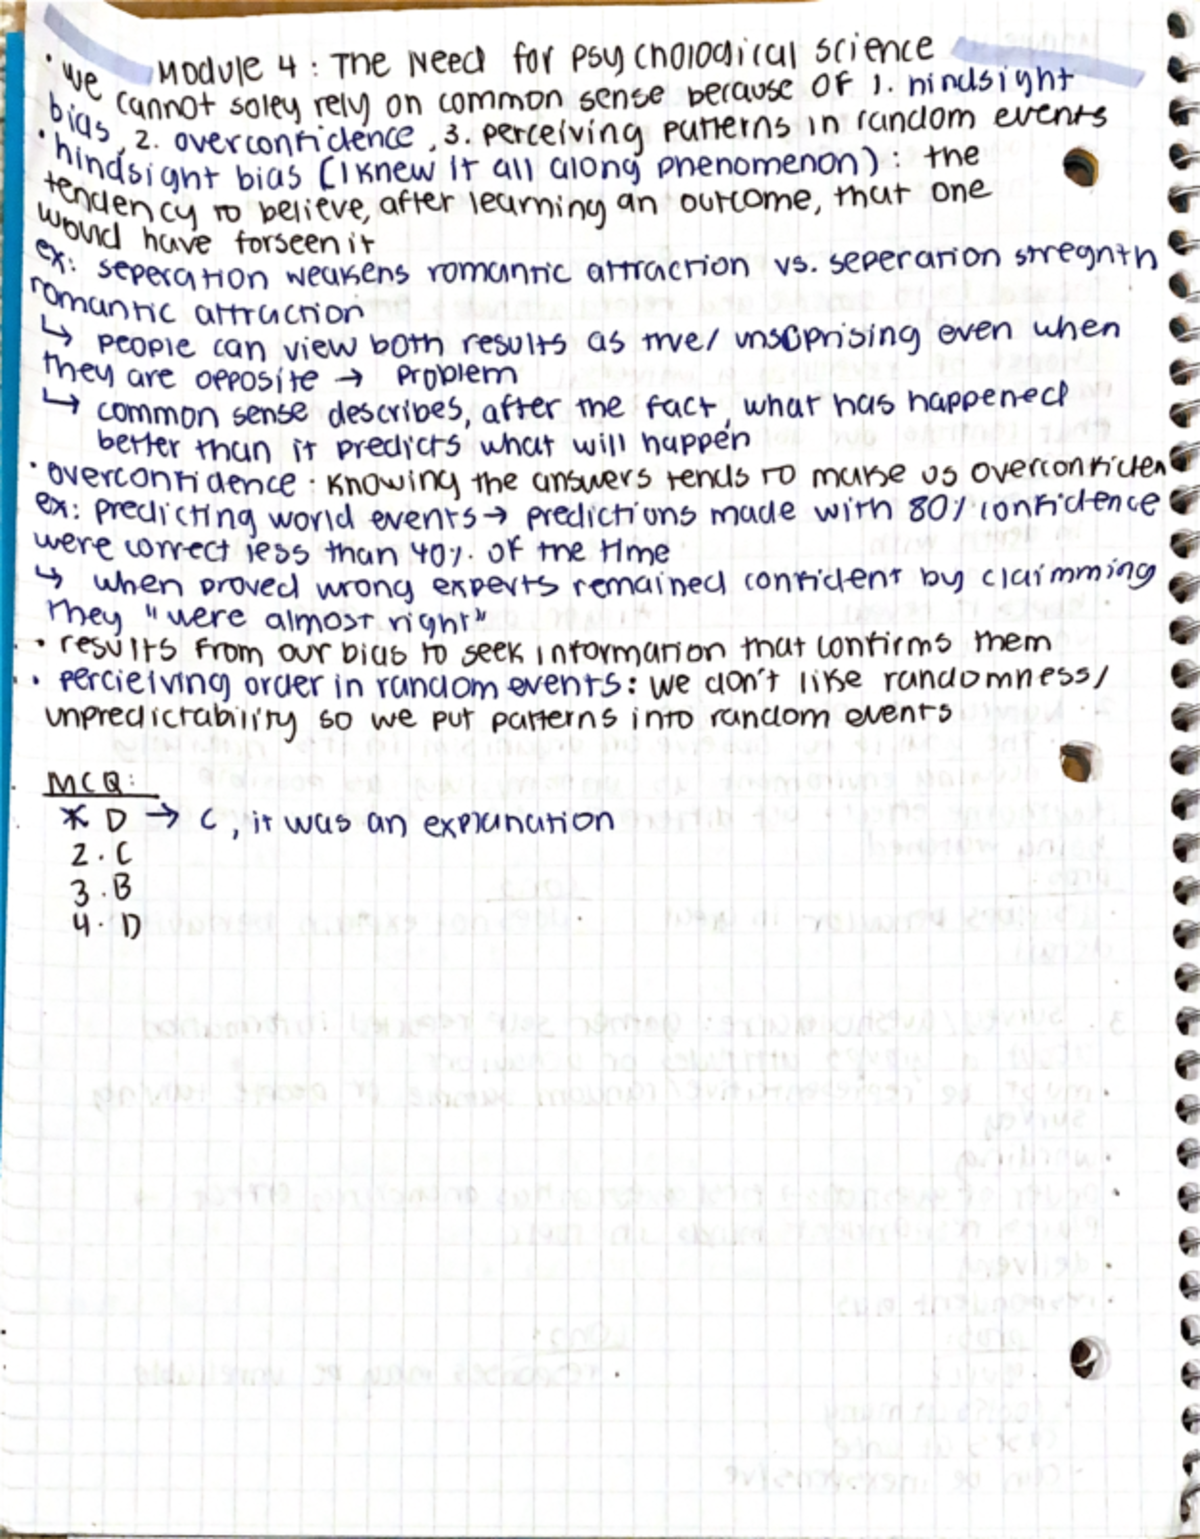 Module 4 : The Need for Psychological Science
• we cannot soley rely on common sense because of 1. hindsight
bias, 2. overconfidence, 3. perceiving patterns in random events
• hindsight bias (I knew it all along phenomenon) : the
tendency to believe, after learning an outcome, that one
would have forseen it
ex: seperation weakens romantic attraction vs. seperation stregnth
romantic attraction
↳ people can view both results as true/ unsuprising even when
they are opposite → problem
↳ common sense describes, after the fact, what has happened
better than it predicts what will happen
• overconfidence : knowing the answers tends to make us overconfiden
ex: predicting world events → predictions made with 80% confidence
were correct less than 40% of the time
↳ when proved wrong experts remained confident by claimming
they "were almost right"
• results from our bias to seek information that confirms them
• percieiving order in random events: we don't like randomness/
unpredictability so we put patterns into random events
MCQ:
* D → C, it was an explanation
2. C
3. B
4. D